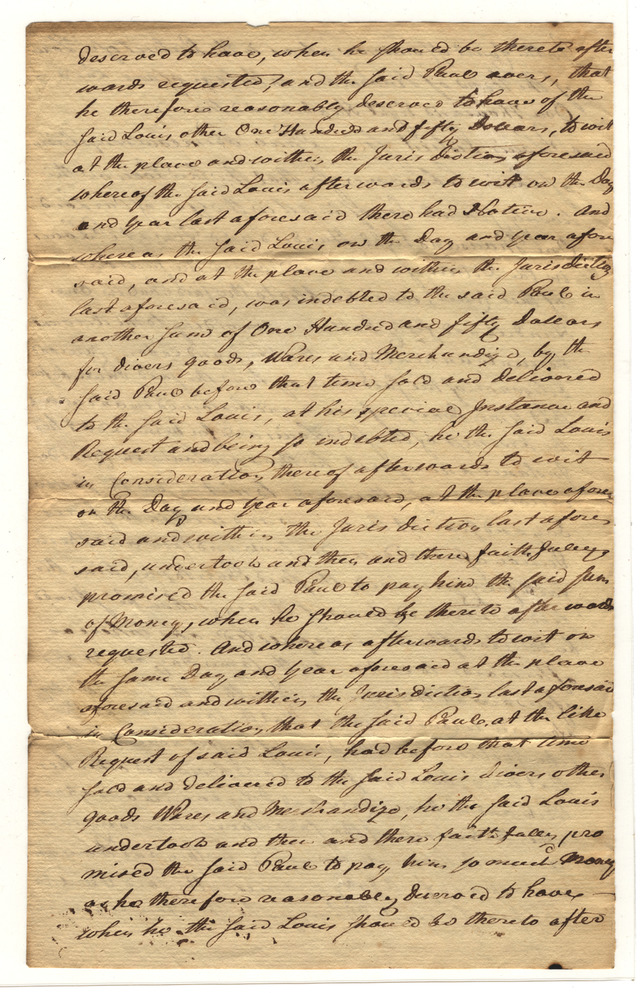 deserved to have, when he should be thereto after
wards requested, and the said Paul avers, that
he therefore reasonably deserved to have of the
said Louis other One Hundred and fifty Dollars, to wit
at the place and within the Jurisdiction aforesaid
whereof the said Louis afterwards to wit on the Day
and year last aforesaid there had Notice. And
whereas the said Louis on the Day and year afore
said, and at the place and within the Jurisdiction
last aforesaid, was indebted to the said Paul in
another sum of One Hundred and fifty Dollars
for divers goods, Wares and Merchandize, by the
said Paul before that time sold and delivered
to the said Louis, at his special Instance and
Request and being so indebted, he the said Louis
in Consideration thereof afterwards to wit
on the Day and year aforesaid, at the place afore
said and within the Jurisdiction last afore
said, undertook and then and there faithfully
promised the said Paul to pay him the said sum
of Money, when he should be thereto after wards
requested. And whereas afterwards to wit on
the same Day and year aforesaid at the place
aforesaid and within the Jurisdiction last aforesaid
in Consideration that the said Paul, at the like
Request of said Louis, had before that time
sold and delivered to the said Louis divers other
goods Wares and Merchandize, he the said Louis
undertook and then and there faithfully pro
mised the said Paul to pay him so much Money
as he therefore reasonably deserved to have
when he the said Louis should be thereto after